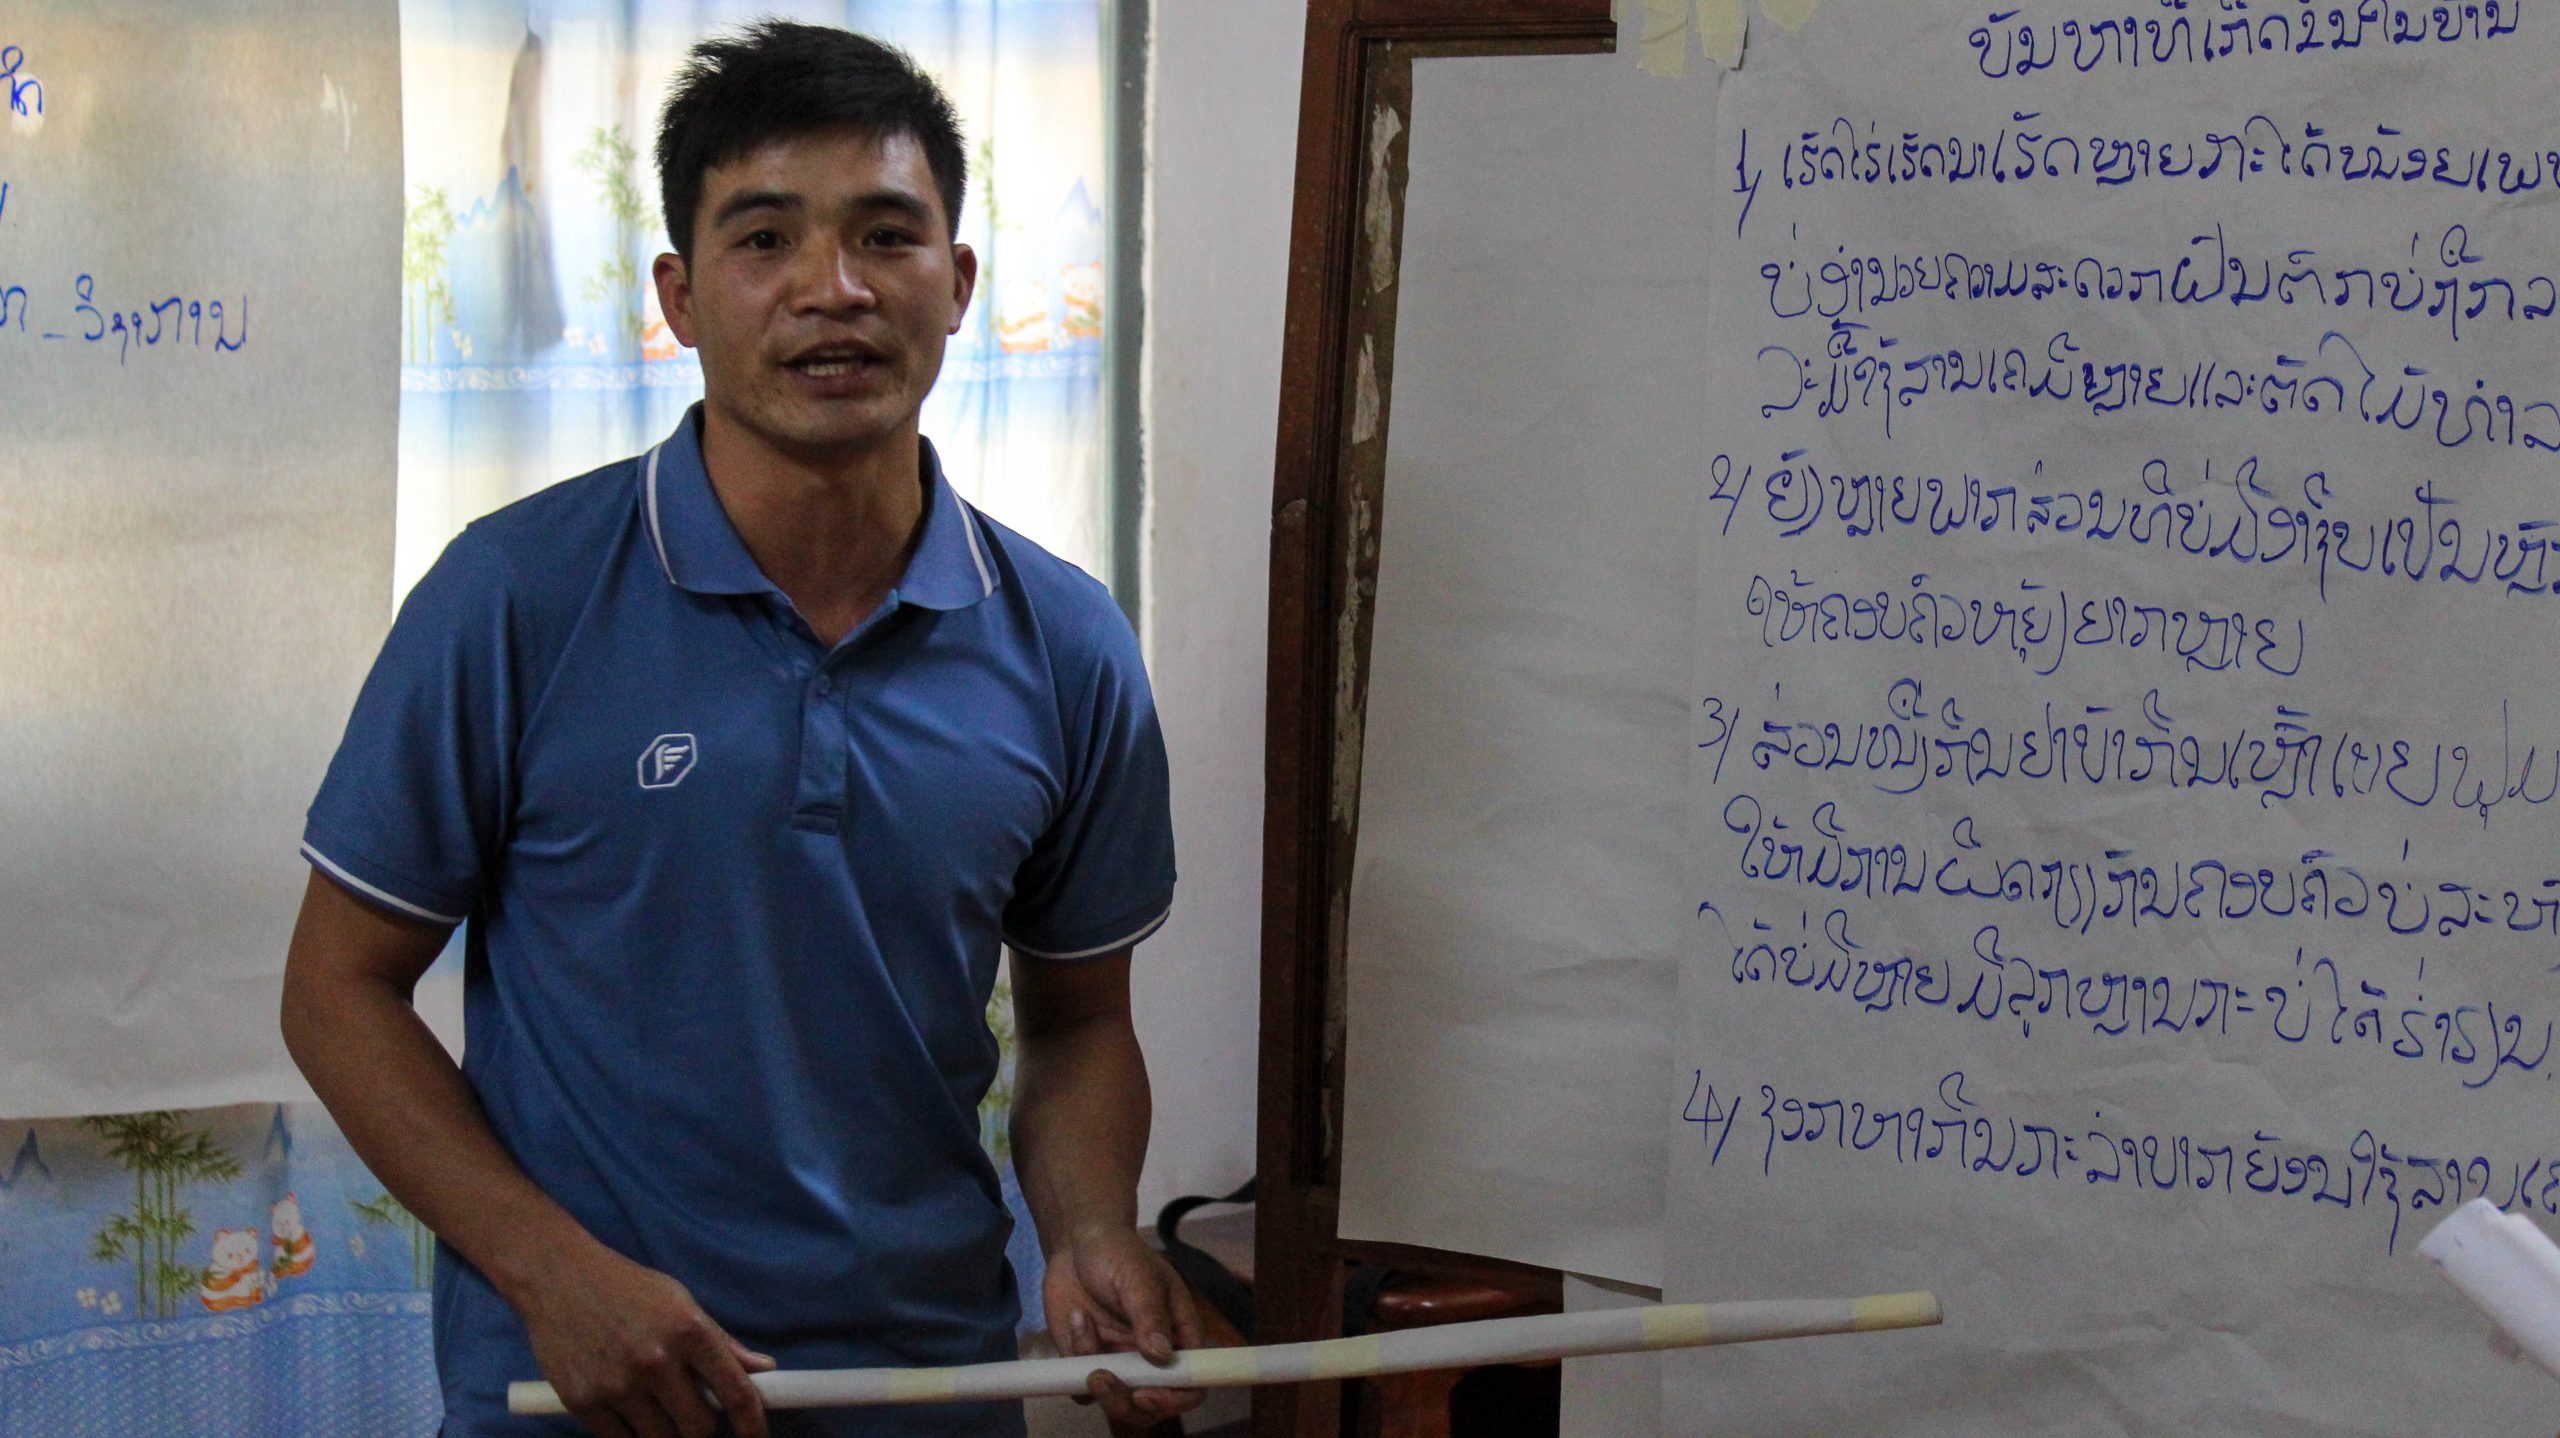 ບັນຫາທີ່ເກີດຂຶ້ນໃນບ້ານ
1/ ເຮັດໄຮ່ເຮັດນາເຮັດຫຼາຍກະໄດ້ໜ້ອຍເພາ
ບໍ່ອຳນວຍຄວາມສະດວກຝົນຕົກບໍ່ຖືກລ
ລະມື້ໃຊ້ສານເຄມີຫຼາຍແລະຕັດໄມ້ທຳລ
2/ ຍັງຫຼາຍພາກສ່ວນທີ່ບໍ່ມີອາຊີບເປັນຫຼັ
ໃຫ້ຄອບຄົວຫຍຸ້ງຍາກຫຼາຍ
3/ ສ່ວນໜຶ່ງກິນຢາບ້າກິນເຫຼົ້າ ຟຸມ
ໃຫ້ມີການຜິດຖຽງກັນຄອບຄົວບໍ່ສະຫ
ໄດ້ບໍ່ມີຫຼາຍມີລູກຫຼານກະບໍ່ໄດ້ຮ່ຳຮຽນ
4/ ຊອກຫາກິນກະລຳບາກຍ້ອນໃຊ້ສານເຄ
ວິຊາການ